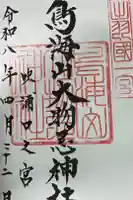 出羽國一宮
鳥海山大物忌神社
吹浦口之宮
令和八年四月二十二日